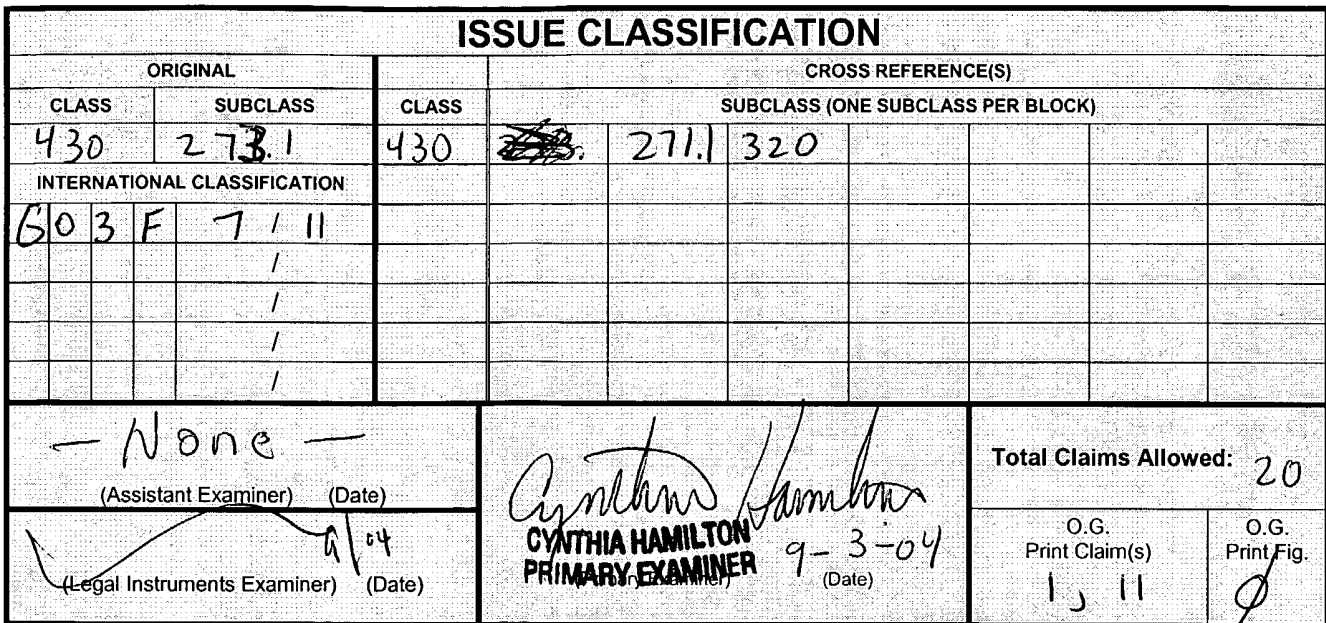 ISSUE CLASSIFICATION
ORIGINAL CROSS REFERENCE(S)
CLASS SUBCLASS CLASS SUBCLASS (ONE SUBCLASS PER BLOCK)
430 273.1 430 271.1 320
INTERNATIONAL CLASSIFICATION
G 0 3 F 7 / 11
/
/
/
/
— None —
(Assistant Examiner) (Date)
9/04
(Legal Instruments Examiner) (Date)
Cynthia Hamilton
CYNTHIA HAMILTON
PRIMARY EXAMINER 9-3-04
(Date)
Total Claims Allowed: 20
O.G. Print Claim(s)
1, 11
O.G. Print Fig.
Ø